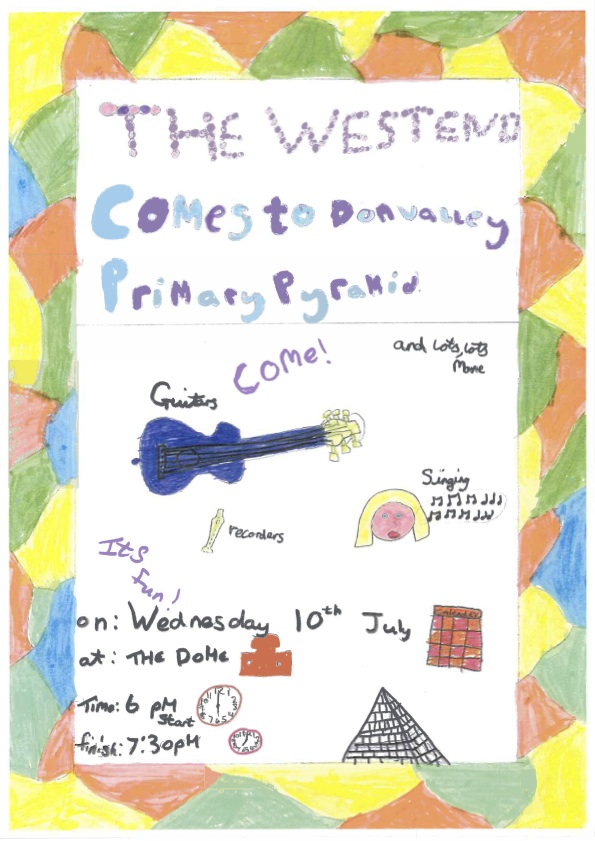 THE WESTEND
Comes to Donvalley
Primary Pyramid
COME!
and lots, lots
More
Guitars
Singing
recorders
Its
fun!
on: Wednesday 10th July
at: THE DOME
Time: 6 pM
Start
finish: 7:30pM